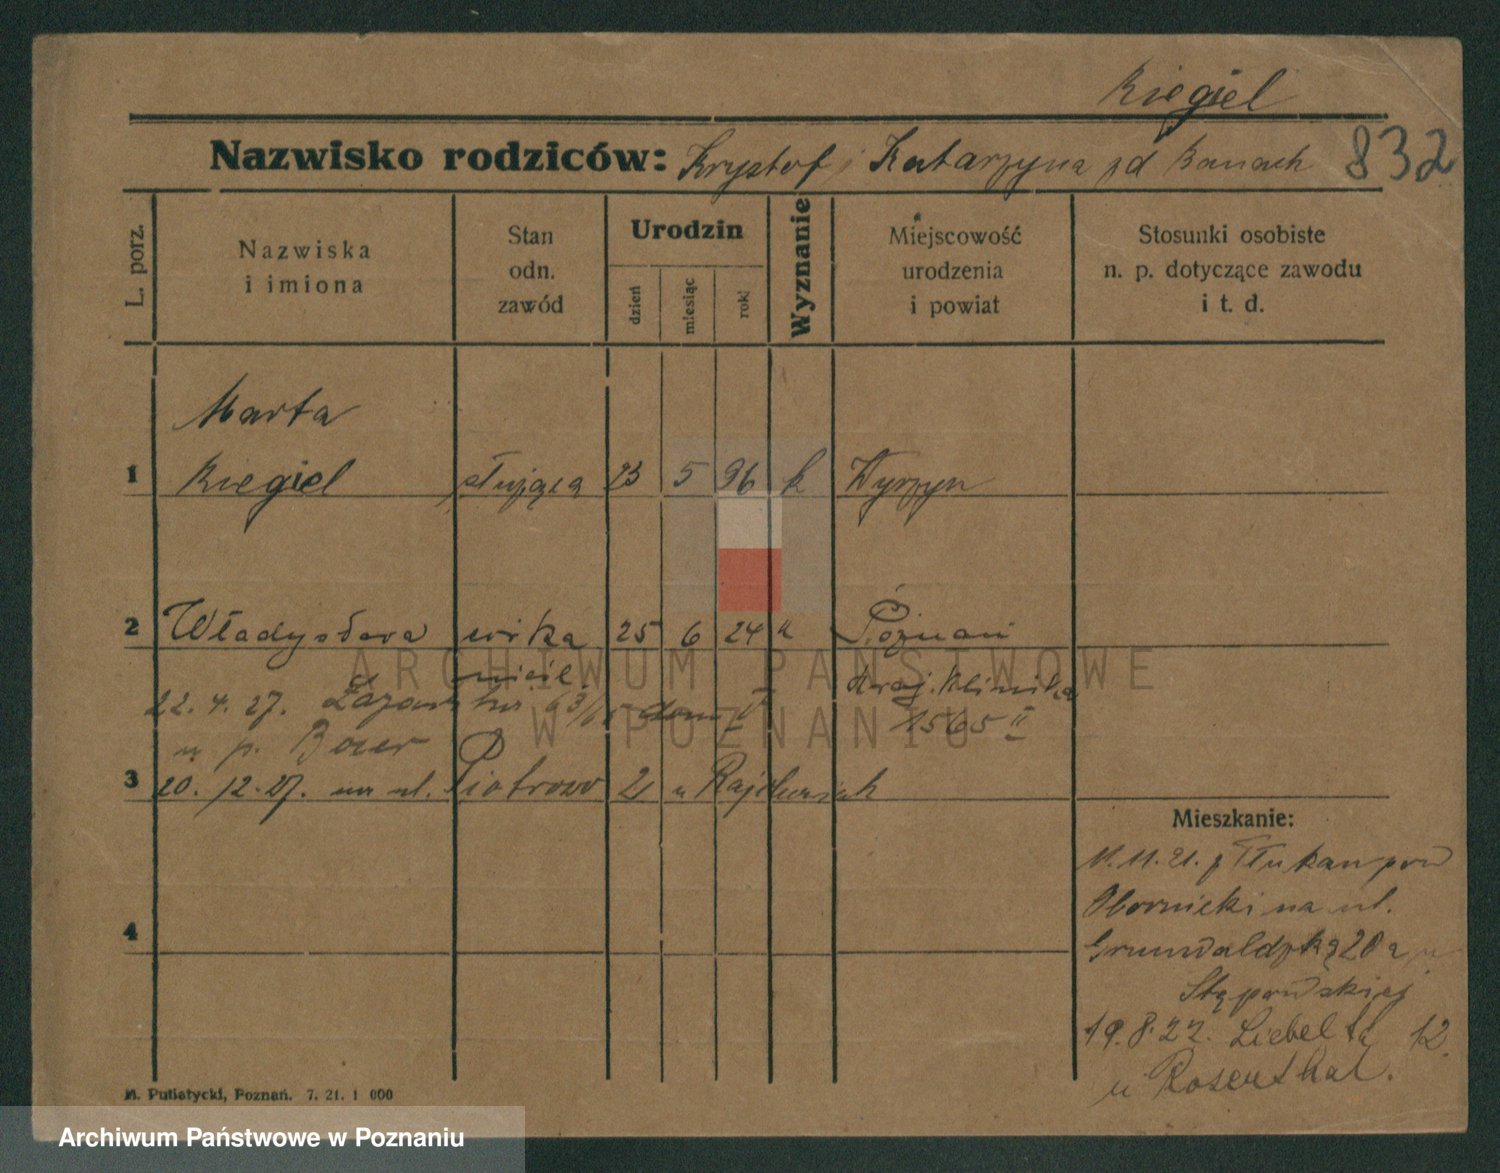 Riegiel
Nazwisko rodziców: Krysztof i Katarzyna zd Banach 832
L. porz.
Nazwiska
i imiona
Stan
odn.
zawód
Urodzin
dzień
miesiąc
rok
Wyznanie
Miejscowość
urodzenia
i powiat
Stosunki osobiste
n. p. dotyczące zawodu
i t. d.
Marta
1 Riegiel służąca 23 5 96 k Wyrzyn
2 Władysława córka 25 6 24 k Poznań
nieśl. Kraj. Klinika
22.4.27. 63/65 dom V 1565 II
u p. Boer
3 20.12.27. na ul. Piotrowo 2 u
4
Mieszkanie:
11.11.21. z pow
Obornicki na ul.
Grunwaldzką 20a u
19.8.22. Liebelta 12
u Rosenthal.
M. Putiatycki, Poznań. 7. 21. 1 000
ARCHIWUM PAŃSTWOWE
W POZNANIU
Archiwum Państwowe w Poznaniu